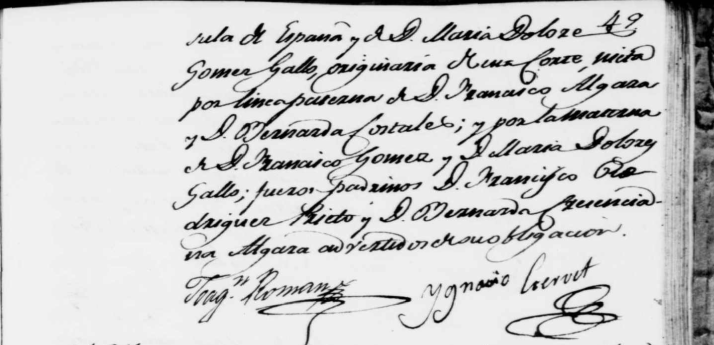 sula de España y de D. Maria Dolore 49
Gomez Gallo, originaria de esta Corte, nieta
por linea paterna de D. Francisco Algara
y D. Bernarda Cortales; y por la materna
de D. Francisco Gomez y D. Maria Dolores
Gallo; fueron padrinos D. Francisco Ro
driguez Nieto y D. Bernarda Cresencia-
na Algara advertidos de su obligacion.
Joaq.n Roman Ygnacio